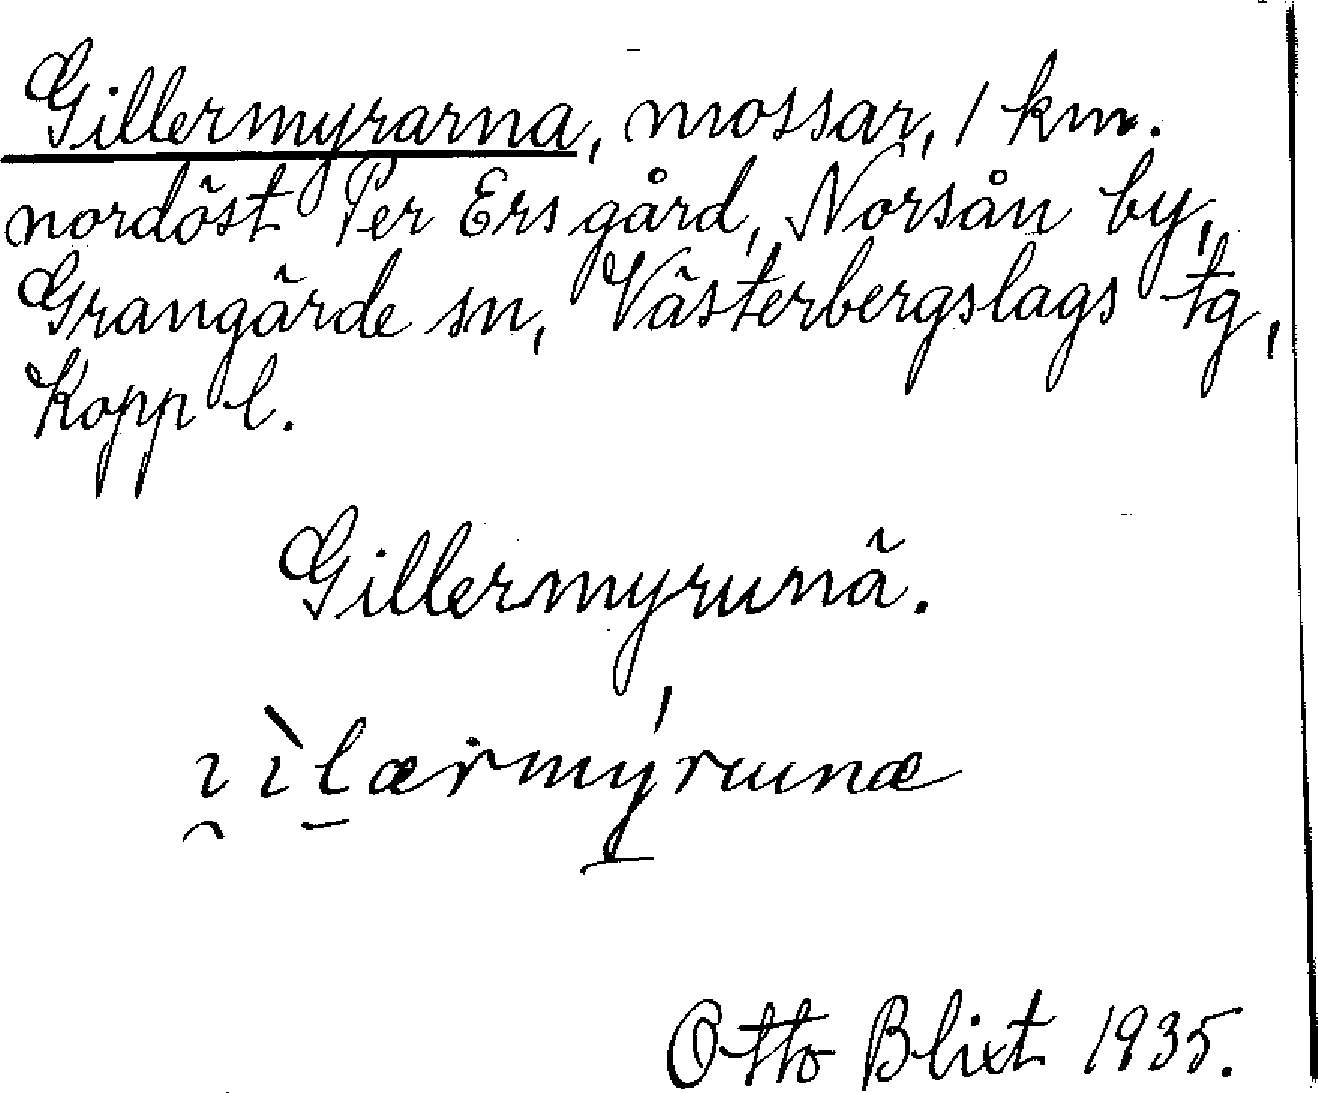 Gillermyrarna, mossar, 1 km.
nordöst Per Ers gård, Norsån by,
Grangärde sn, Västerbergslags tg,
Kopp l.
Gillermyrunä.
Otto Blixt 1935.